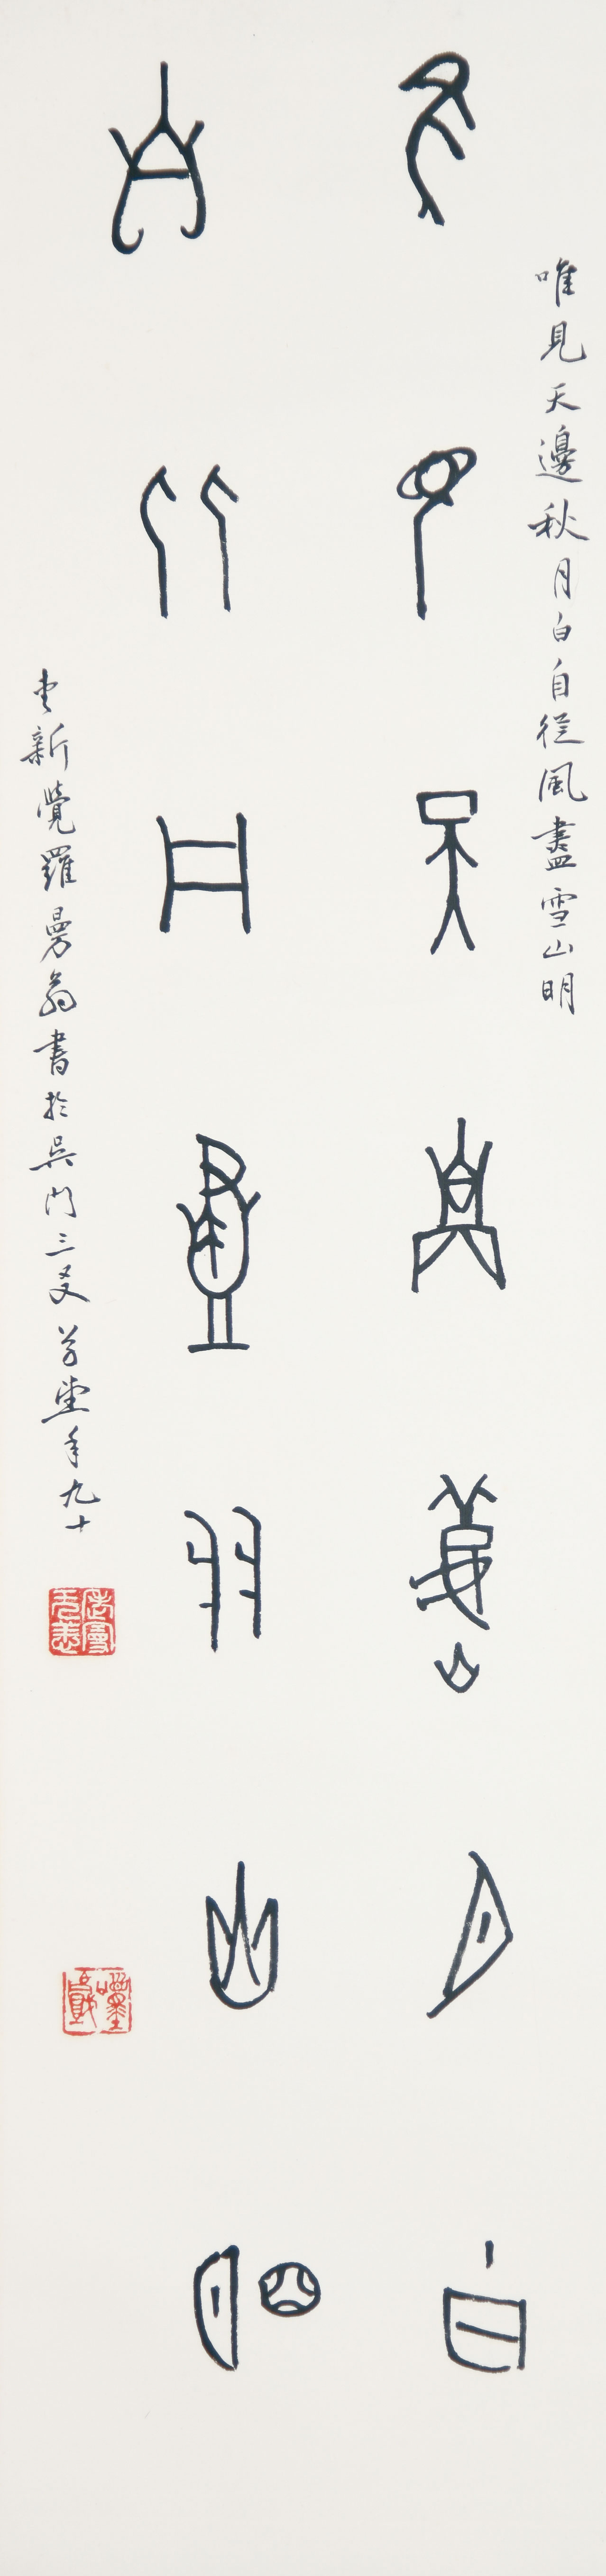 唯見天邊秋月白自從風盡雪山明
唯見天邊秋月白
自從風盡雪山明
愛新覺羅曼翁書於吳門三友草堂年九十